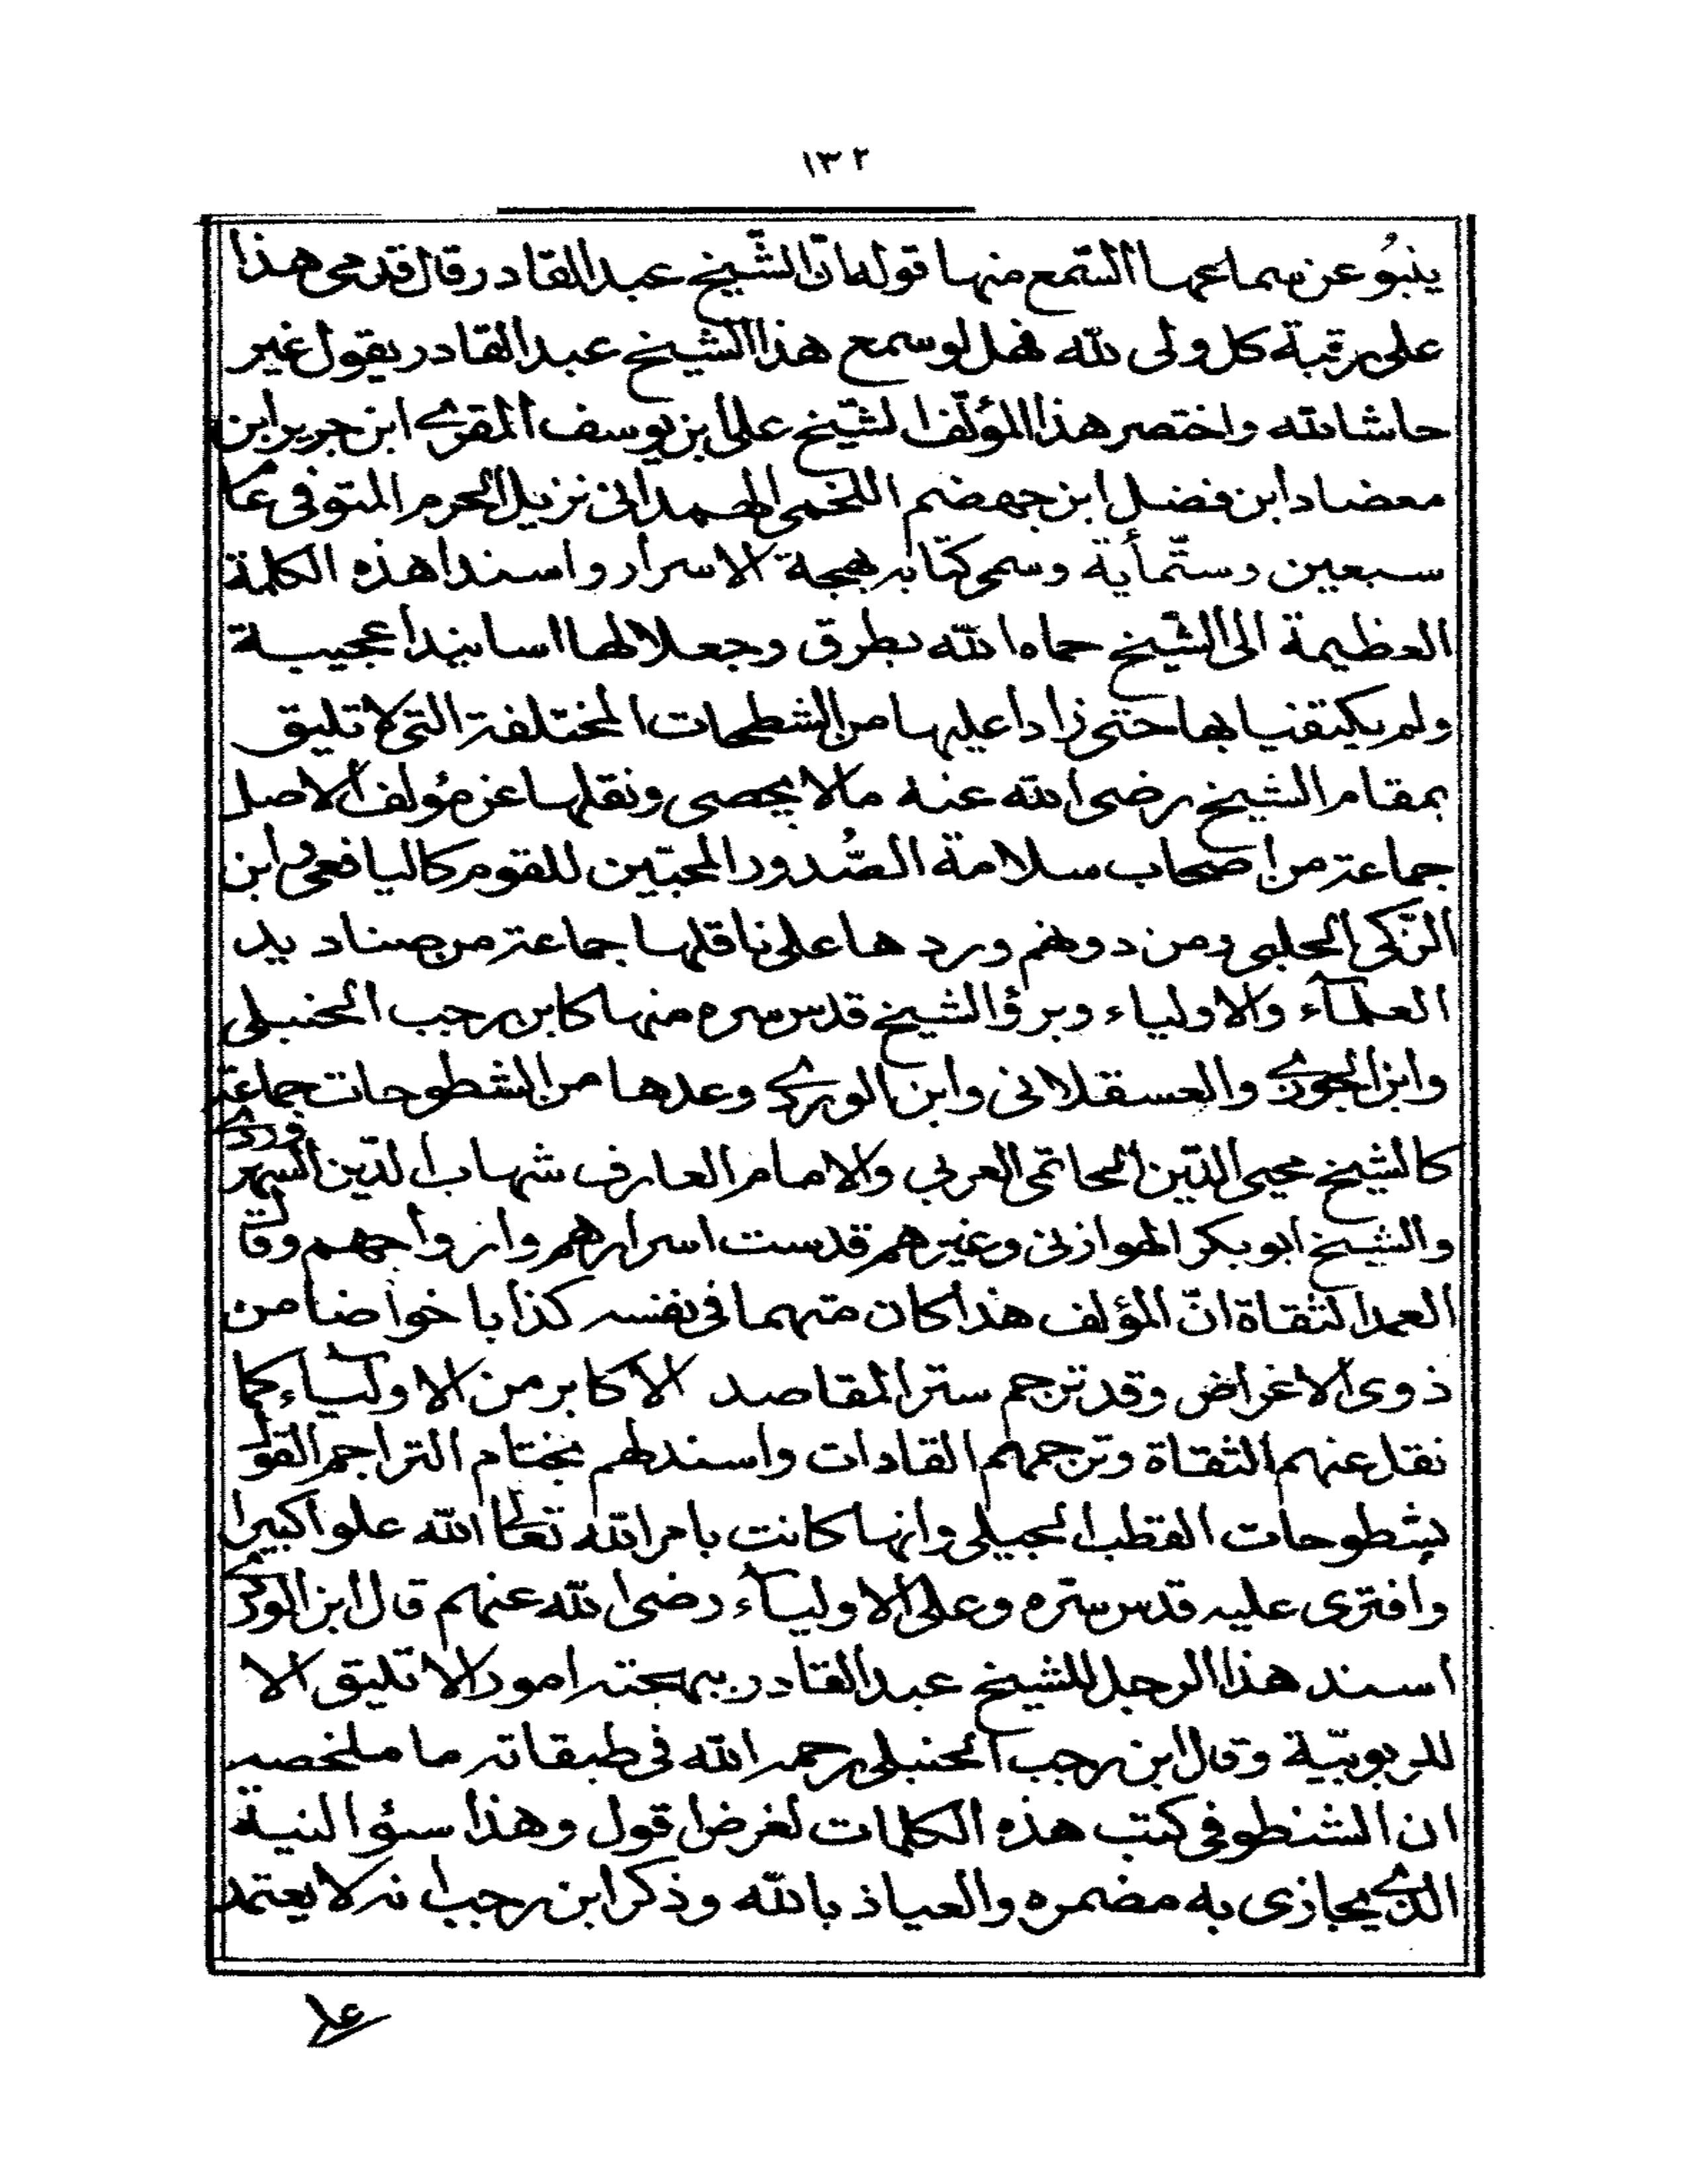 ١٣٢
ينبُو عن سماعها السمع منها قوله انّ الشّيخ عبد القادر قال قدمى هذا
على رقبة كل ولى لله فهل لو سمع هذا الشيخ عبد القادر يقول غير
حاشا لله واختصر هذا المؤلّف الشّيخ على ابن يوسف المقرے ابن جرير ابن
معضاد ابن فضل ابن جهضم اللخمى الهمدانى نزيل الحرم المتوفى عام
سبعين وستّمأية وسمى كتابه بهجة الاسرار واسندا هذه الكلمة
العظيمة الى الشّيخ حماه الله بطرق وجعلا لها اسانيدا عجيبة
ولم يكتفيا بها حتى زادا عليها من الشطحات المختلفة التى لا تليق
بمقام الشيخ رضى الله عنه مالا يحصى ونقلها عن مؤلف الاصل
جماعة من اصحاب سلامة الصُّدور المحبّين للقوم كاليافعى وابن
الزّكى الحلبى ومن دونهم وردها على ناقلها جماعة من صناديد
العلمآء والاولياء وبرؤ الشيخ قدس سره منها كابن رجب الحنبلى
وابن الجوزے والعسقلانى وابن الوردے وعدها من الشطوحات جماعة
كالشيخ محيى الدّين الحاتمى العربى والامام العارف شهاب الدّين السهروردے
والشيخ ابو بكر الهوازنى وغيرهم قدست اسرارهم وارواحهم وقال
العمد الثقاة انّ المؤلف هذا كان متهما فى نفسه كذابا خواضا من
ذوى الاغراض وقد ترجم سترا لمقاصد الاكابر من الاوليآء كما
نقل عنهم الثقاة وترجمهم القادات واسند لهم بختام التراجم القول
بشطوحات القطب الجيلى وانها كانت بامر الله تعالى الله علوا كبيرا
وافترى عليه قدس سّره وعلى الاوليآء رضى الله عنهم قال ابن الوردے
اسند هذا الرجل للشيخ عبد القادر ببهجته امورا لا تليق الا
للربوبيّة وقال ابن رجب الحنبلى رحمه الله فى طبقاته ما ملخصه
ان الشنطوفى كتب هذه الكلمات لغرض اقول وهذا سؤ النية
الذے يجازى به مضمره والعياذ بالله وذكر ابن رجب انه لا يعتمد
على